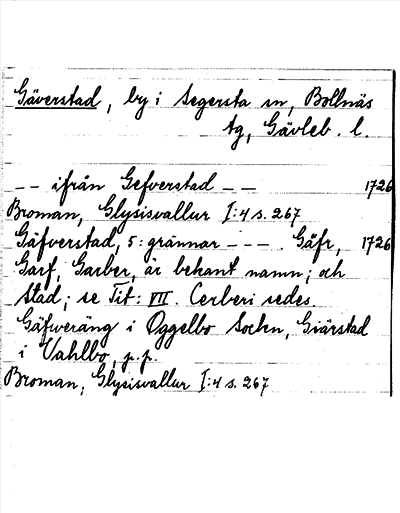 Gäverstad, by i Segersta sn, Bollnäs
tg, Gävleb. l.
-- ifrån Gefverstad -- 1726
Broman, Glysisvallur I:4 s. 267
Gäfverstad, 5: grännar --- Gåfr, 1726
Garf, Garber, är bekant namn; och
stad; se Tit: VII. Cerberi sedes.
Gäfweräng i Oggelbo Sochn, Giärstad
i Vahlbo, p.p.
Broman, Glysisvallur I:4 s. 267